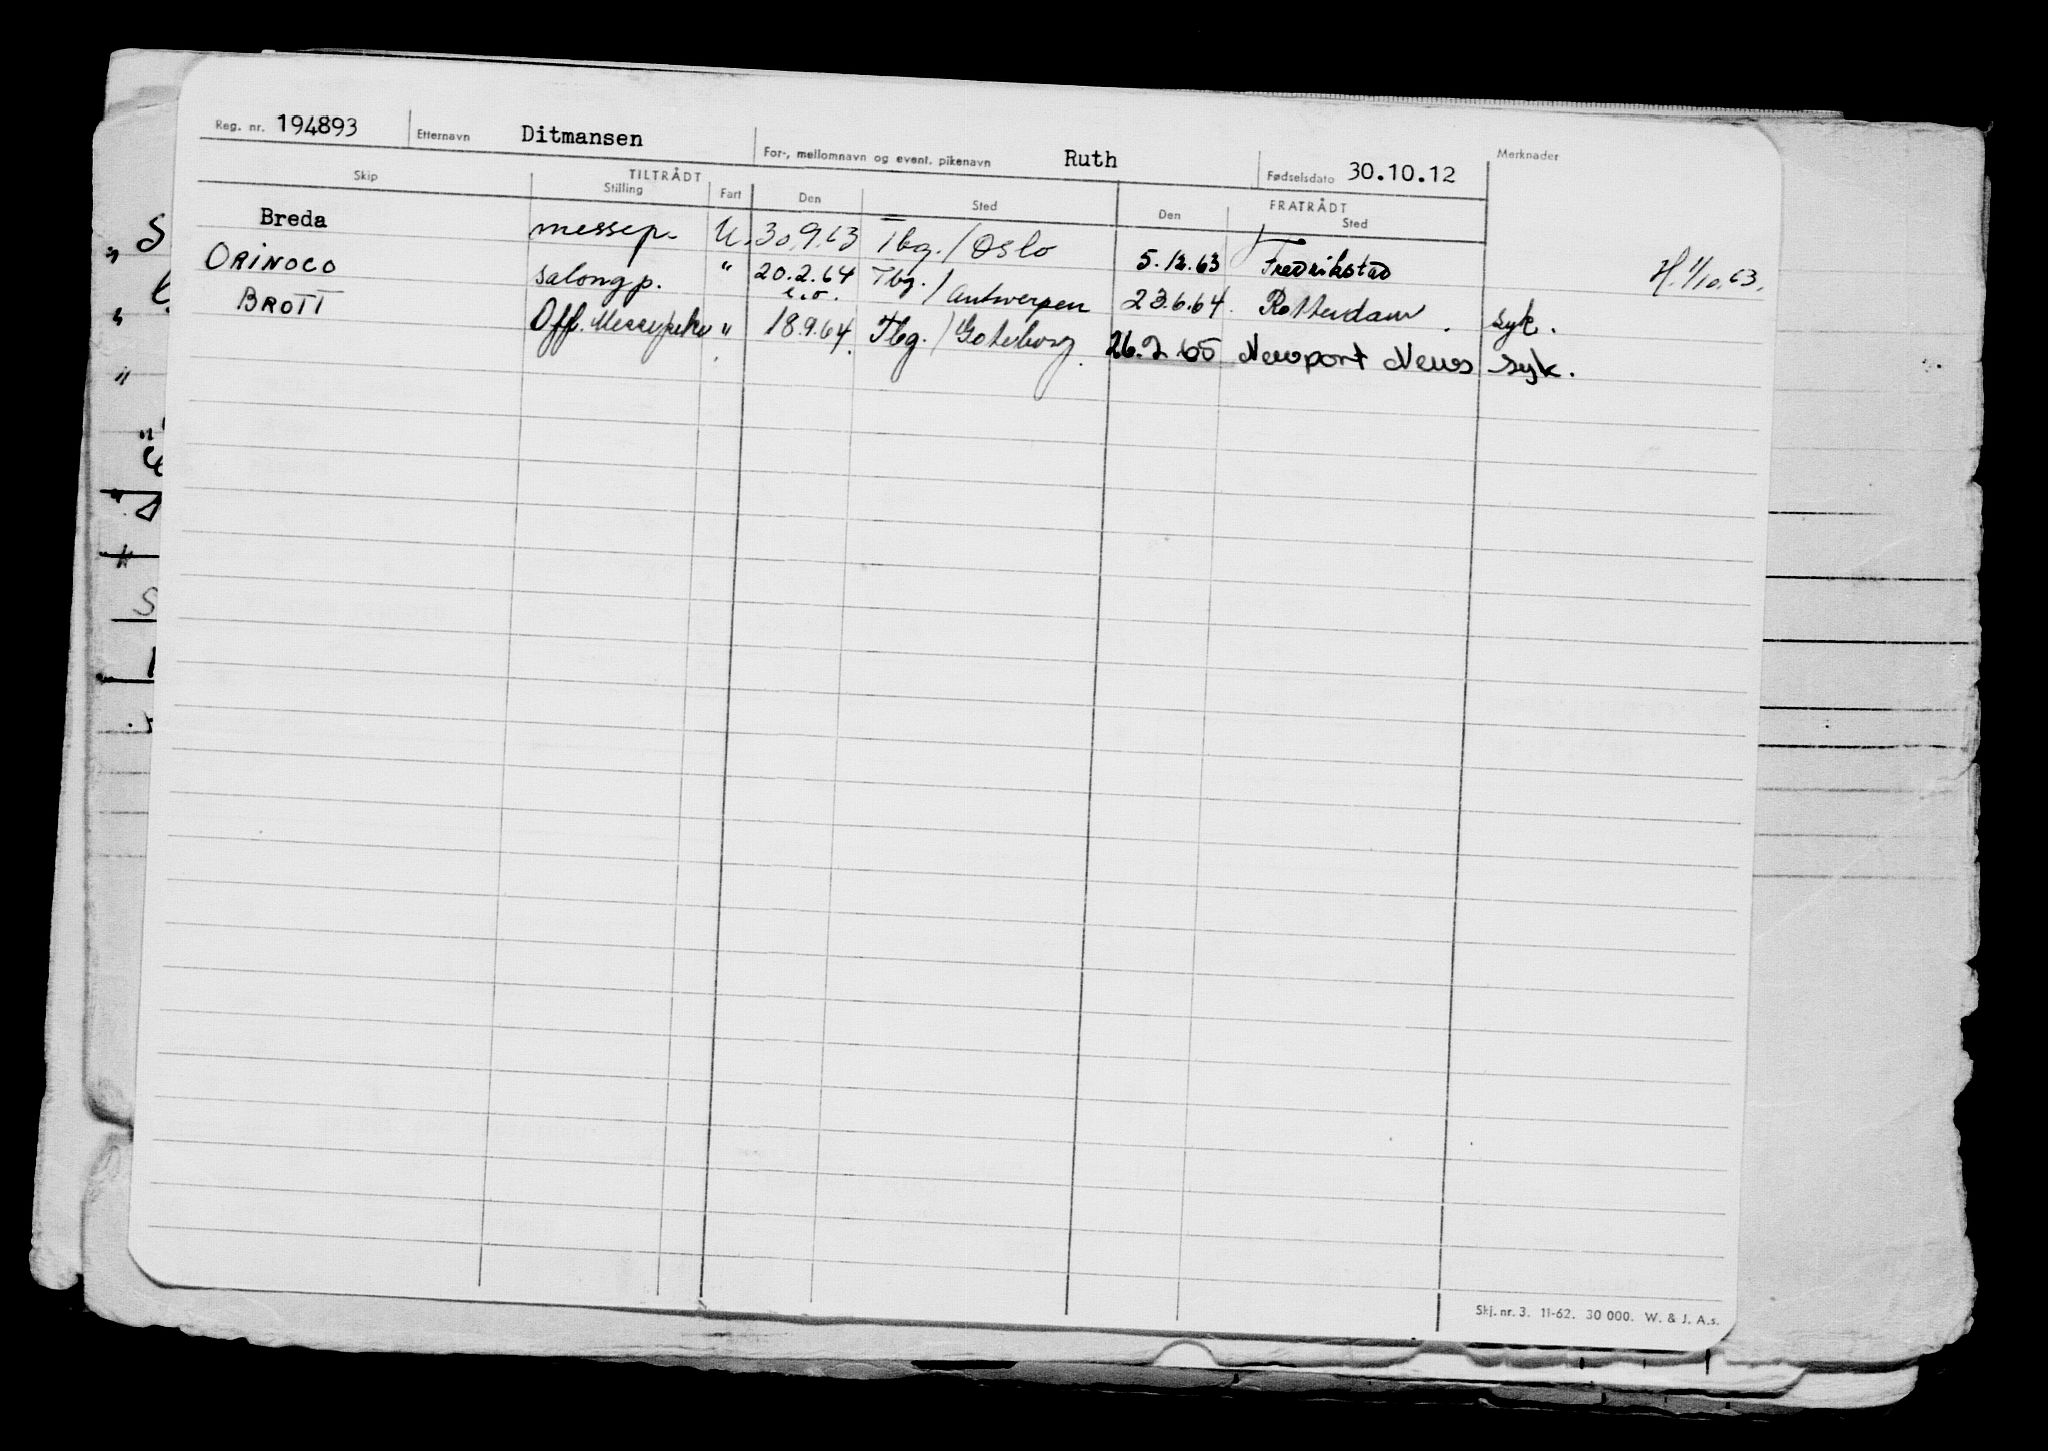 Reg. nr. 194893 Etternavn Ditmansen For-, mellomnavn og event. pikenavn Ruth Fødselsdato 30.10.12 Merknader
TILTRÅDT FRATRÅDT
Skip Stilling Fart Den Sted Den Sted
Breda messep. U. 30.9.63 Tbg. / Oslo 5.12.63 Fredrikstad H. 1/10.63.
ORINOCO salongp. " 20.2.64 Tbg. / Antwerpen 23.6.64. Rotterdam. syk.
e.o.
BROTT Off. Messepike " 18.9.64. Tbg. / Göteborg. 26.2.65 Newport News syk.
Skj. nr. 3. 11-62. 30 000. W. & J. A.s.